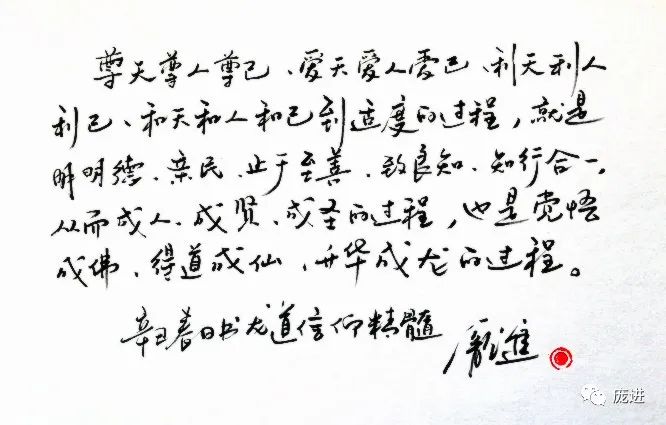 尊天尊人尊己、爱天爱人爱己、利天利人
利己、和天和人和己到适度的过程，就是
明明德、亲民、止于至善、致良知、知行合一，
从而成人、成贤、成圣的过程，也是觉悟
成佛、得道成仙、升华成龙的过程。
辛丑春日书龙道信仰精髓
龐進
庞进